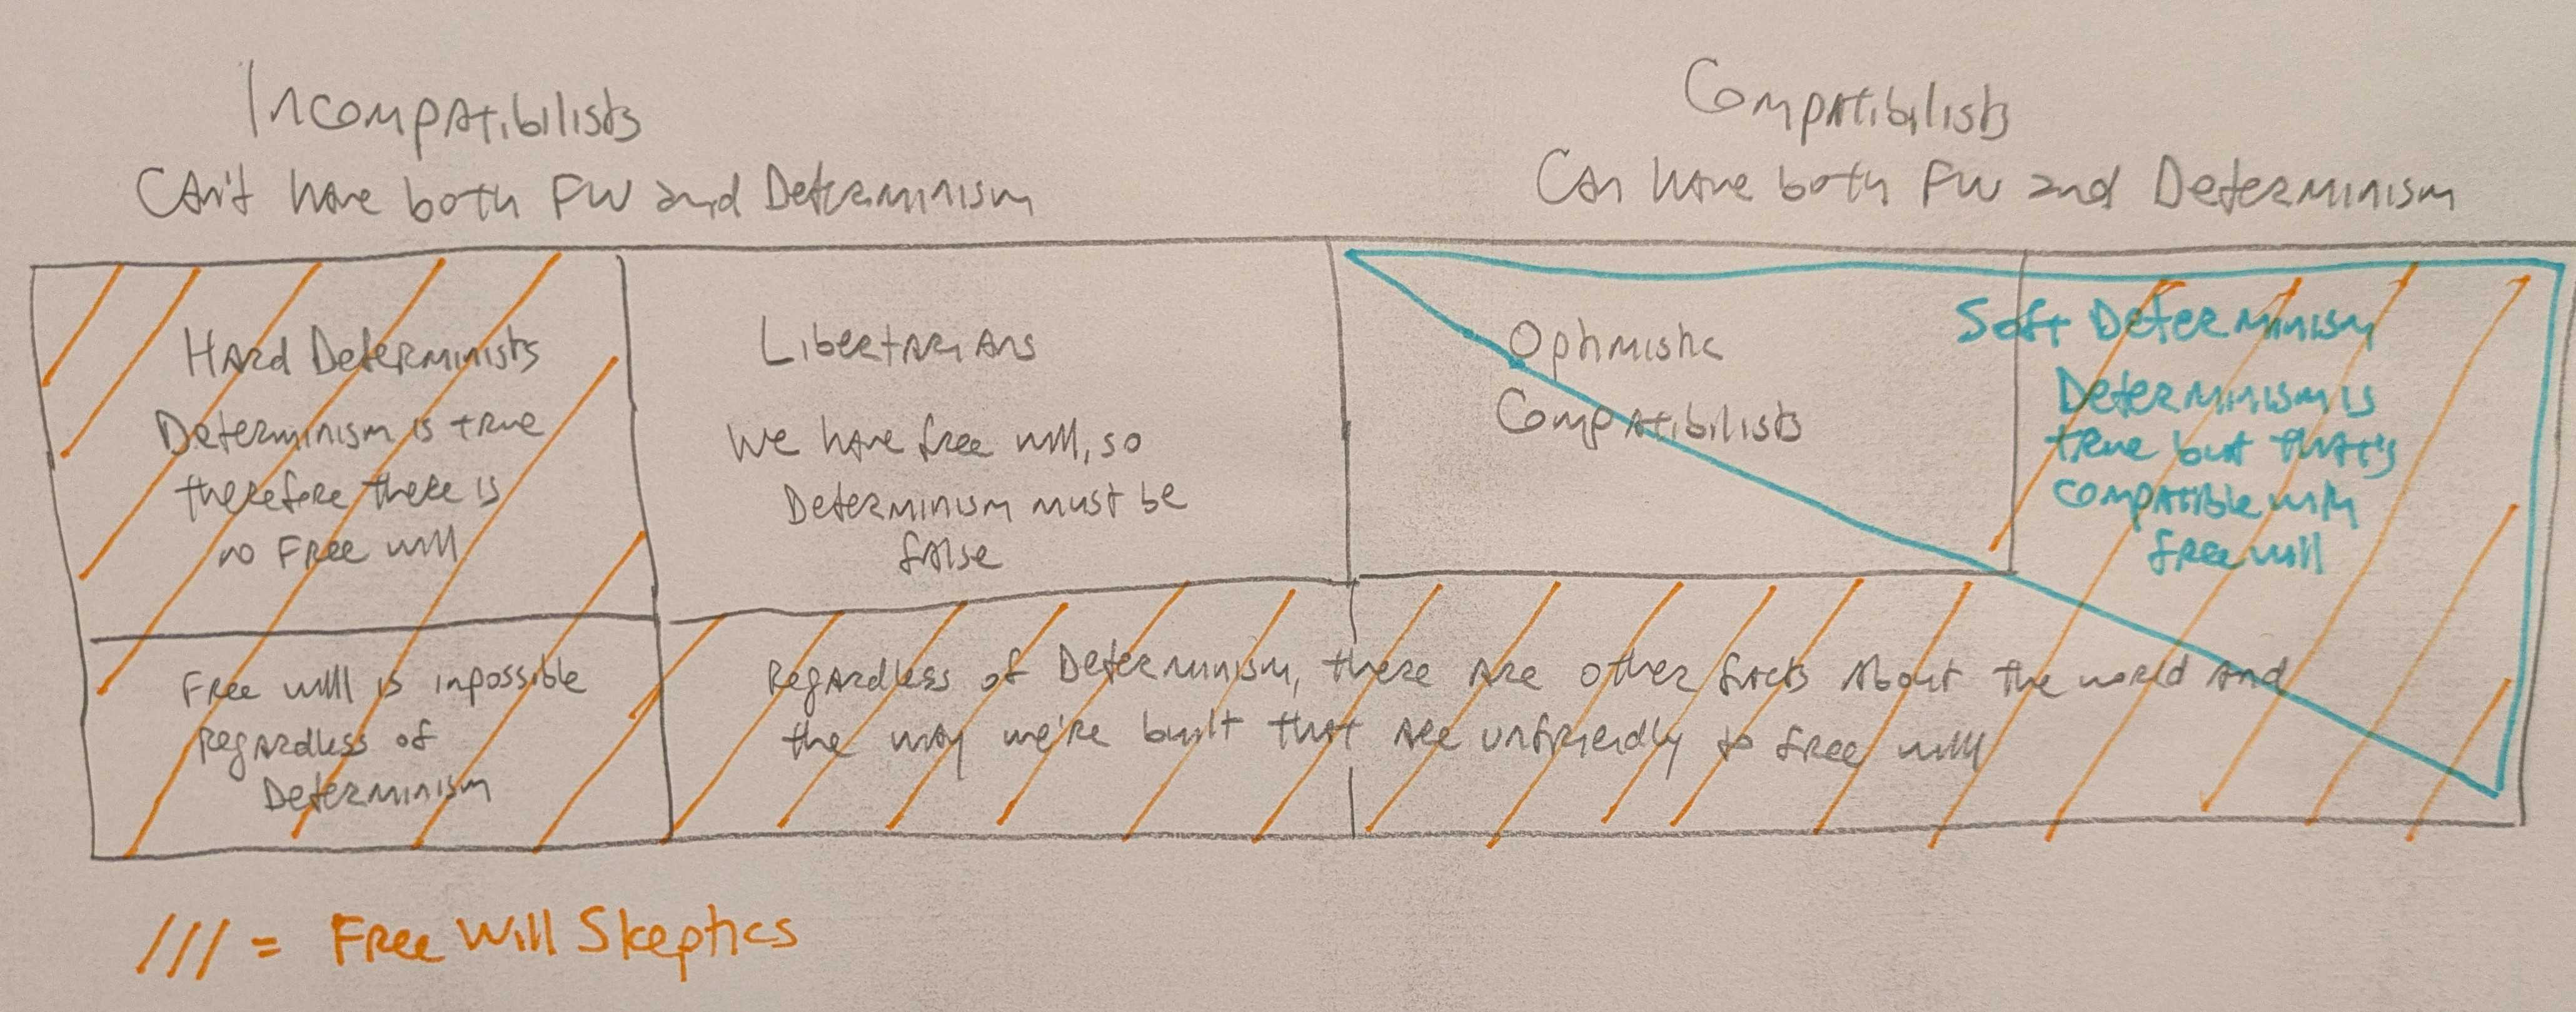 Incompatibilists
Can't have both FW and Determinism
Compatibilists
Can have both FW and Determinism
Hard Determinists
Determinism is true
therefore there is
no Free will
Libertarians
We have free will, so
Determinism must be
false
Optimistic
Compatibilists
Soft Determinism
Determinism is
true but that's
compatible with
free will
Free will is inpossible
Regardless of
Determinism
Regardless of Determinism, there are other facts about the world and
the way we're built that are unfriendly to free will
/// = Free Will Skeptics